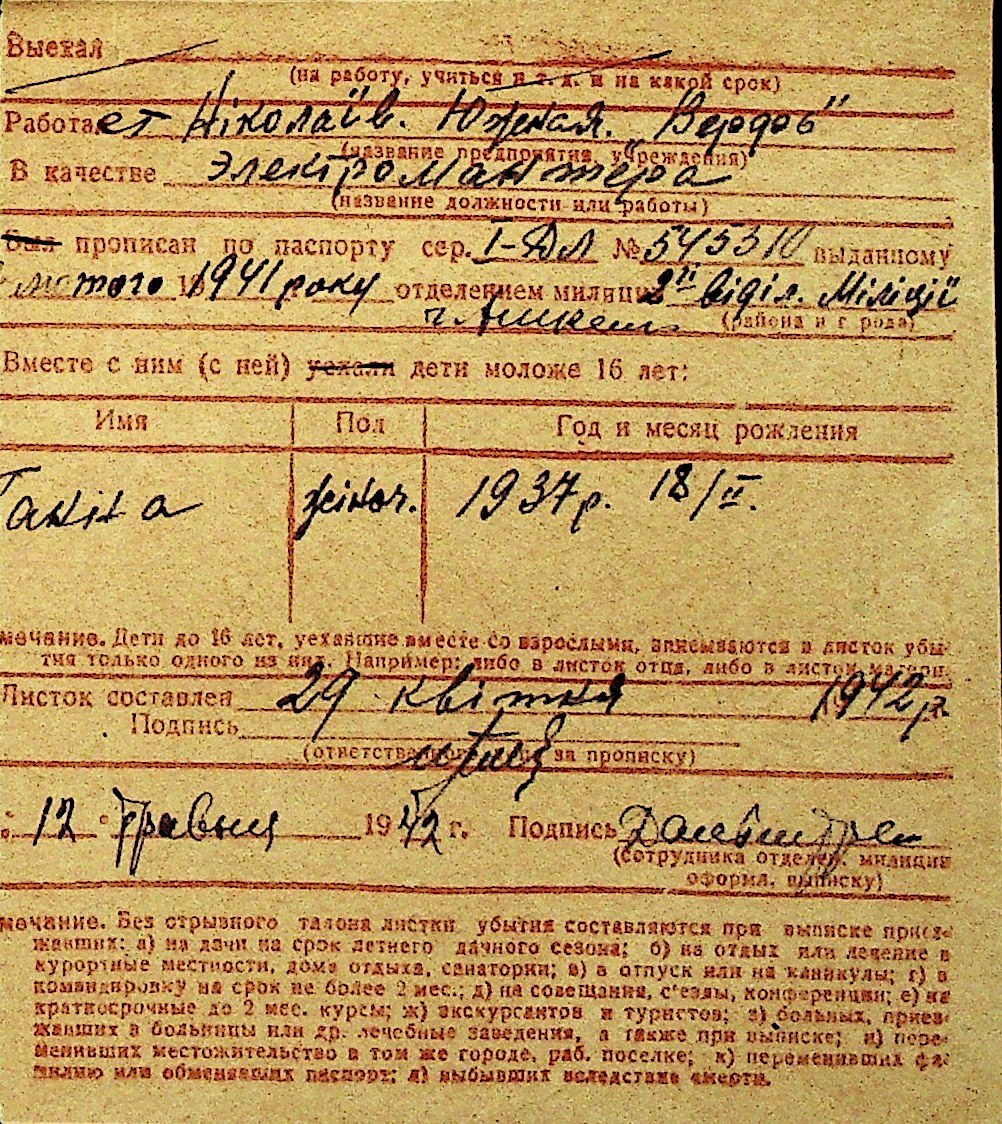 Выехал
(на работу, учиться и т. д. и на какой срок)
Работает Ніколаїв. Южная. "Верфь"
(название предприятия, учреждения)
В качестве электромантёра
(название должности или работы)
был прописан по паспорту сер. I-ДЛ № 545310 выданному
лютого 1941 року отделением милиции 2ії віділ. Міліції
(района и города)
Вместе с ним (с ней) уехали дети моложе 16 лет:
Имя Пол Год и месяц рождения
Галина жіноч. 1937 р. 18/II.
мечание. Дети до 16 лет, уехавшие вместе со взрослыми, вписываются в листок убы-
тия только одного из них. Например: либо в листок отца, либо в листок матери.
Листок составлен 29 квітня 1942 р.
Подпись
(ответственного за прописку)
12 травня 1942 г. Подпись
(сотрудника отделен. милиции
оформ. выписку)
мечание. Без отрывного талона листки убытия составляются при выписке приез-
жавших: а) на дачи на срок летнего дачного сезона; б) на отдых или лечение в
курортные местности, дома отдыха, санатории; в) в отпуск или на каникулы; г) в
командировку на срок не более 2 мес.; д) на совещания, с'езды, конференции; е) на
краткосрочные до 2 мес. курсы; ж) экскурсантов и туристов; з) больных, приез-
жавших в больницы или др. лечебные заведения, а также при выписке; и) пере-
менивших местожительство в том же городе, раб. поселке; к) переменивших фа-
милию или обменявших паспорт; л) выбывших вследствие смерти.